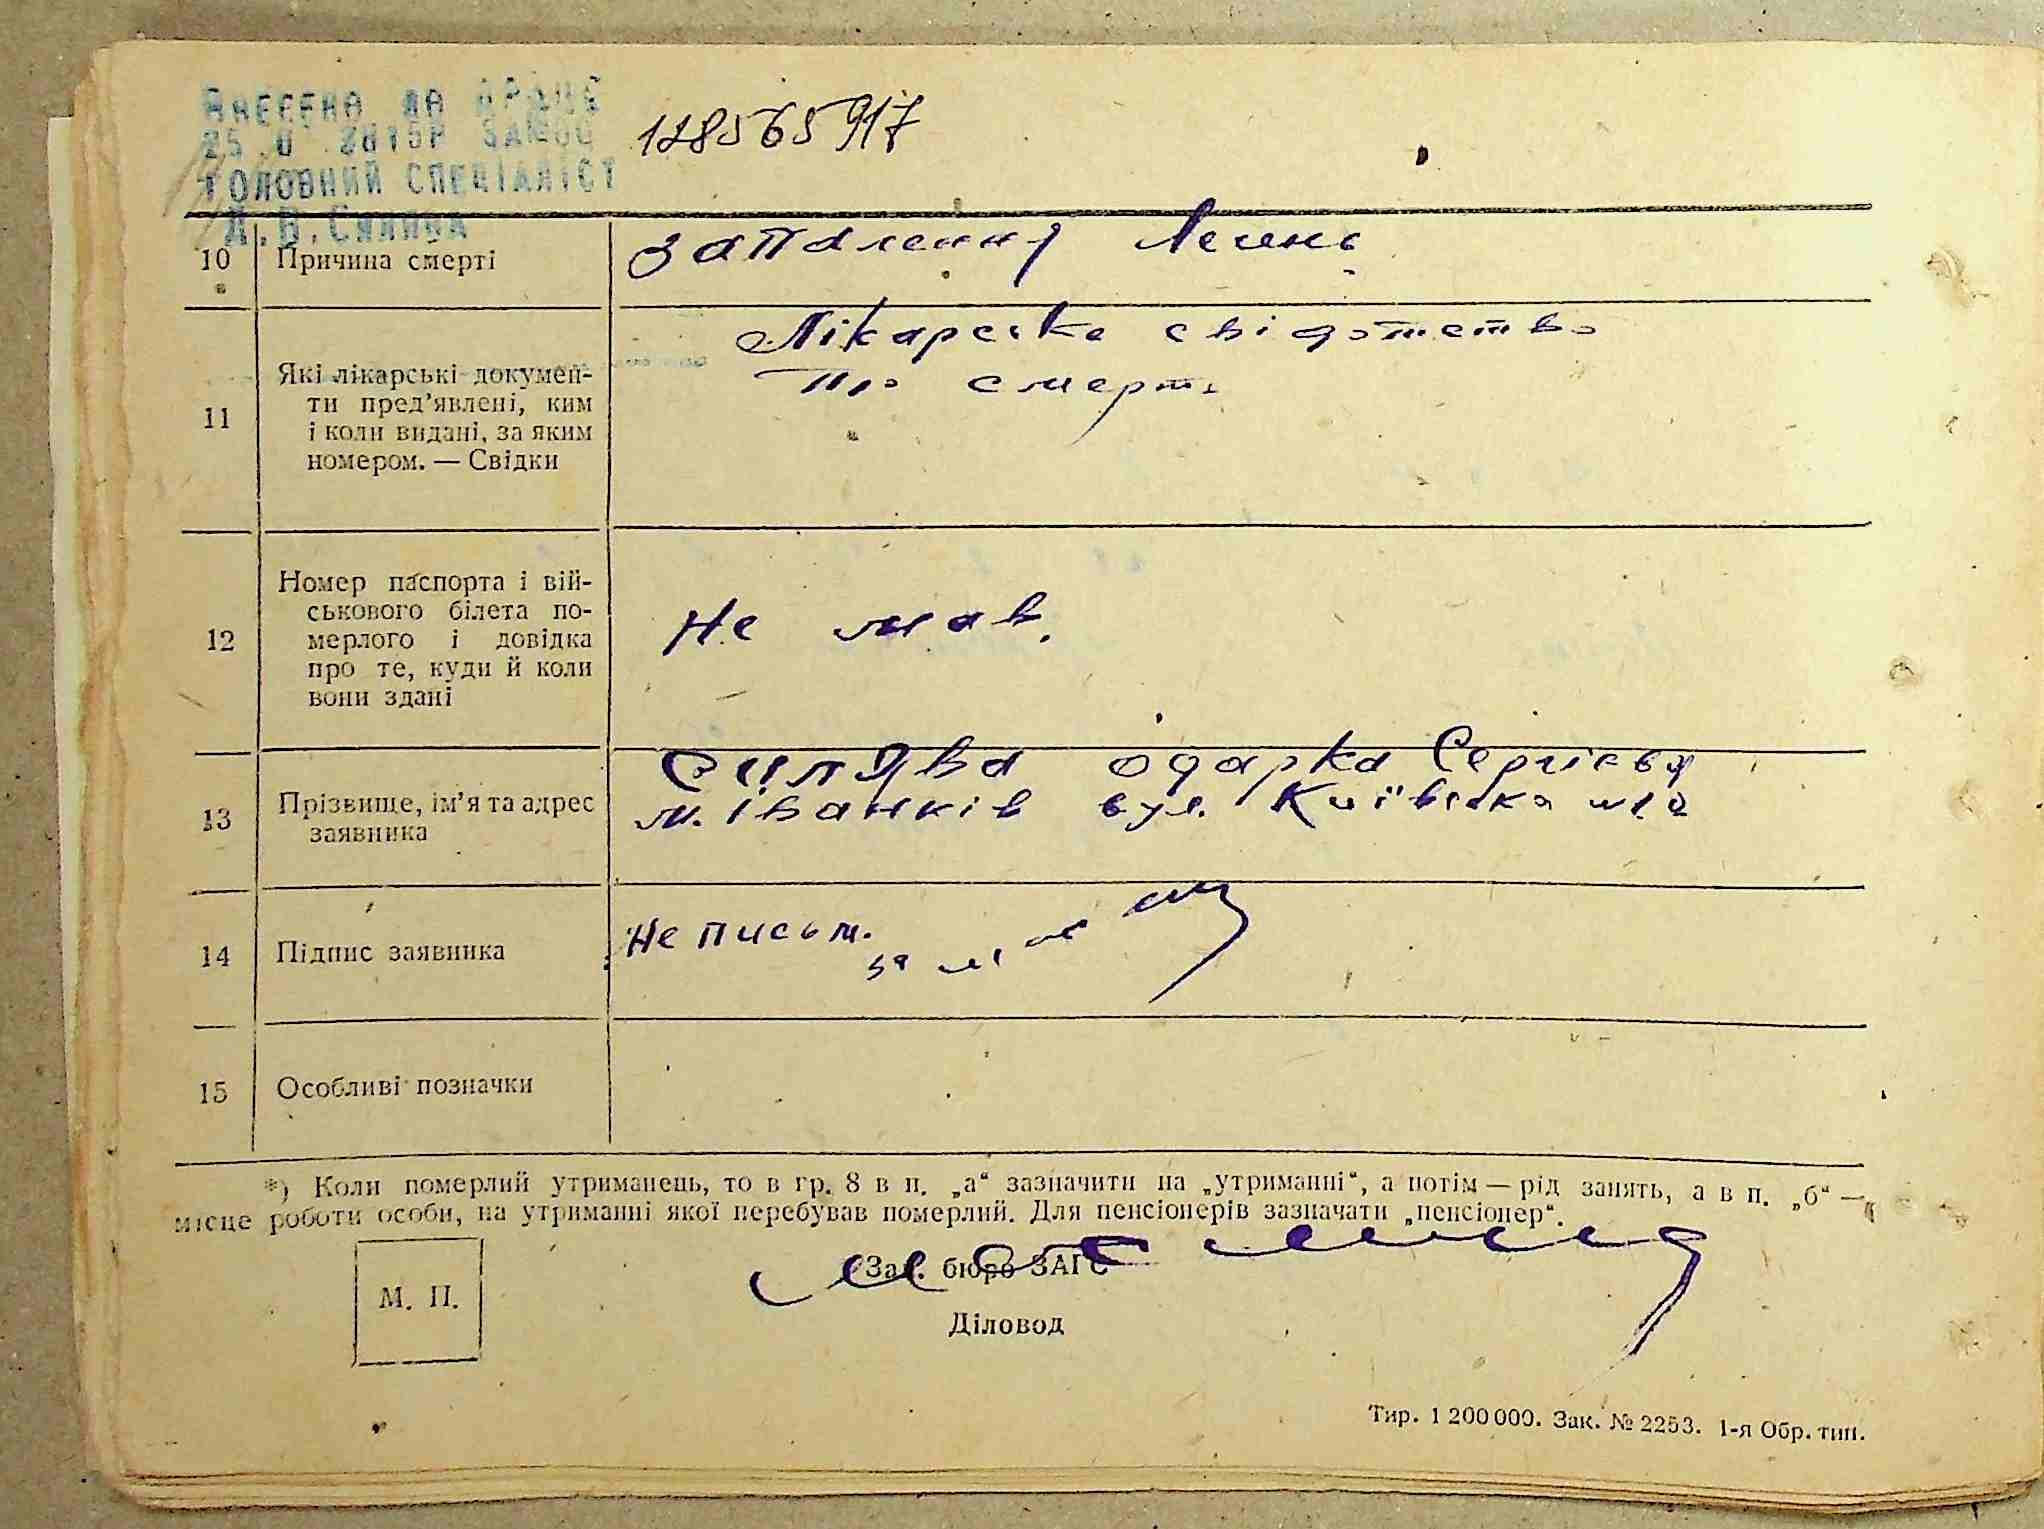 ВНЕСЕНО ДО
ГОЛОВНИЙ СПЕЦІАЛІСТ
128565917
10 Причина смерті
запалення легень
11 Які лікарські докумен-
ти пред’явлені, ким
і коли видані, за яким
номером. — Свідки
Лікарське свідотство
про смерть
12 Номер паспорта і вій-
ськового білета по-
мерлого і довідка
про те, куди й коли
вони здані
Не мав.
13 Прізвище, ім’я та адрес
заявника
Силява Одарка Сергієвя
м. Іванків вул. Київська
14 Підпис заявника
Не письм.
15 Особливі позначки
*) Коли померлий утриманець, то в гр. 8 в п. „а“ зазначити на „утриманні“, а потім — рід занять, а в п. „б“ —
місце роботи особи, на утриманні якої перебував померлий. Для пенсіонерів зазначати „пенсіонер“.
М. П.
Зав. бюро ЗАГС
Діловод
Тир. 1 200 000. Зак. № 2253. 1-я Обр. тип.